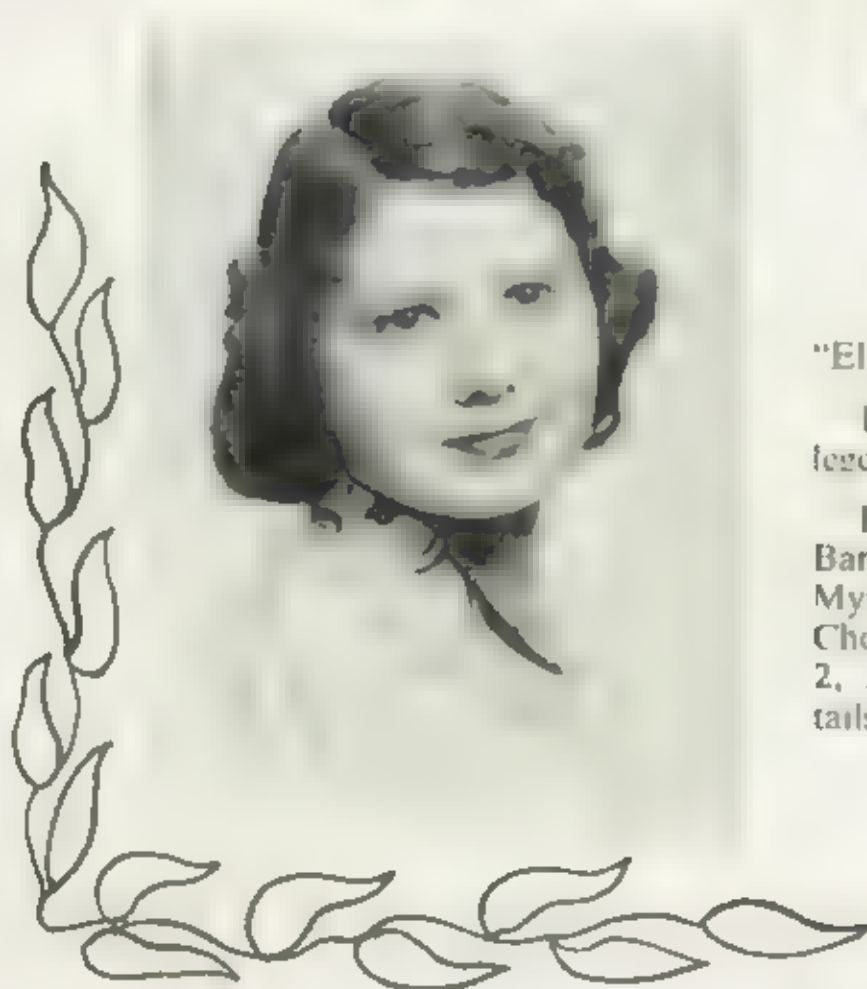 "El
lege
Bar
My
Cho
2,
tails